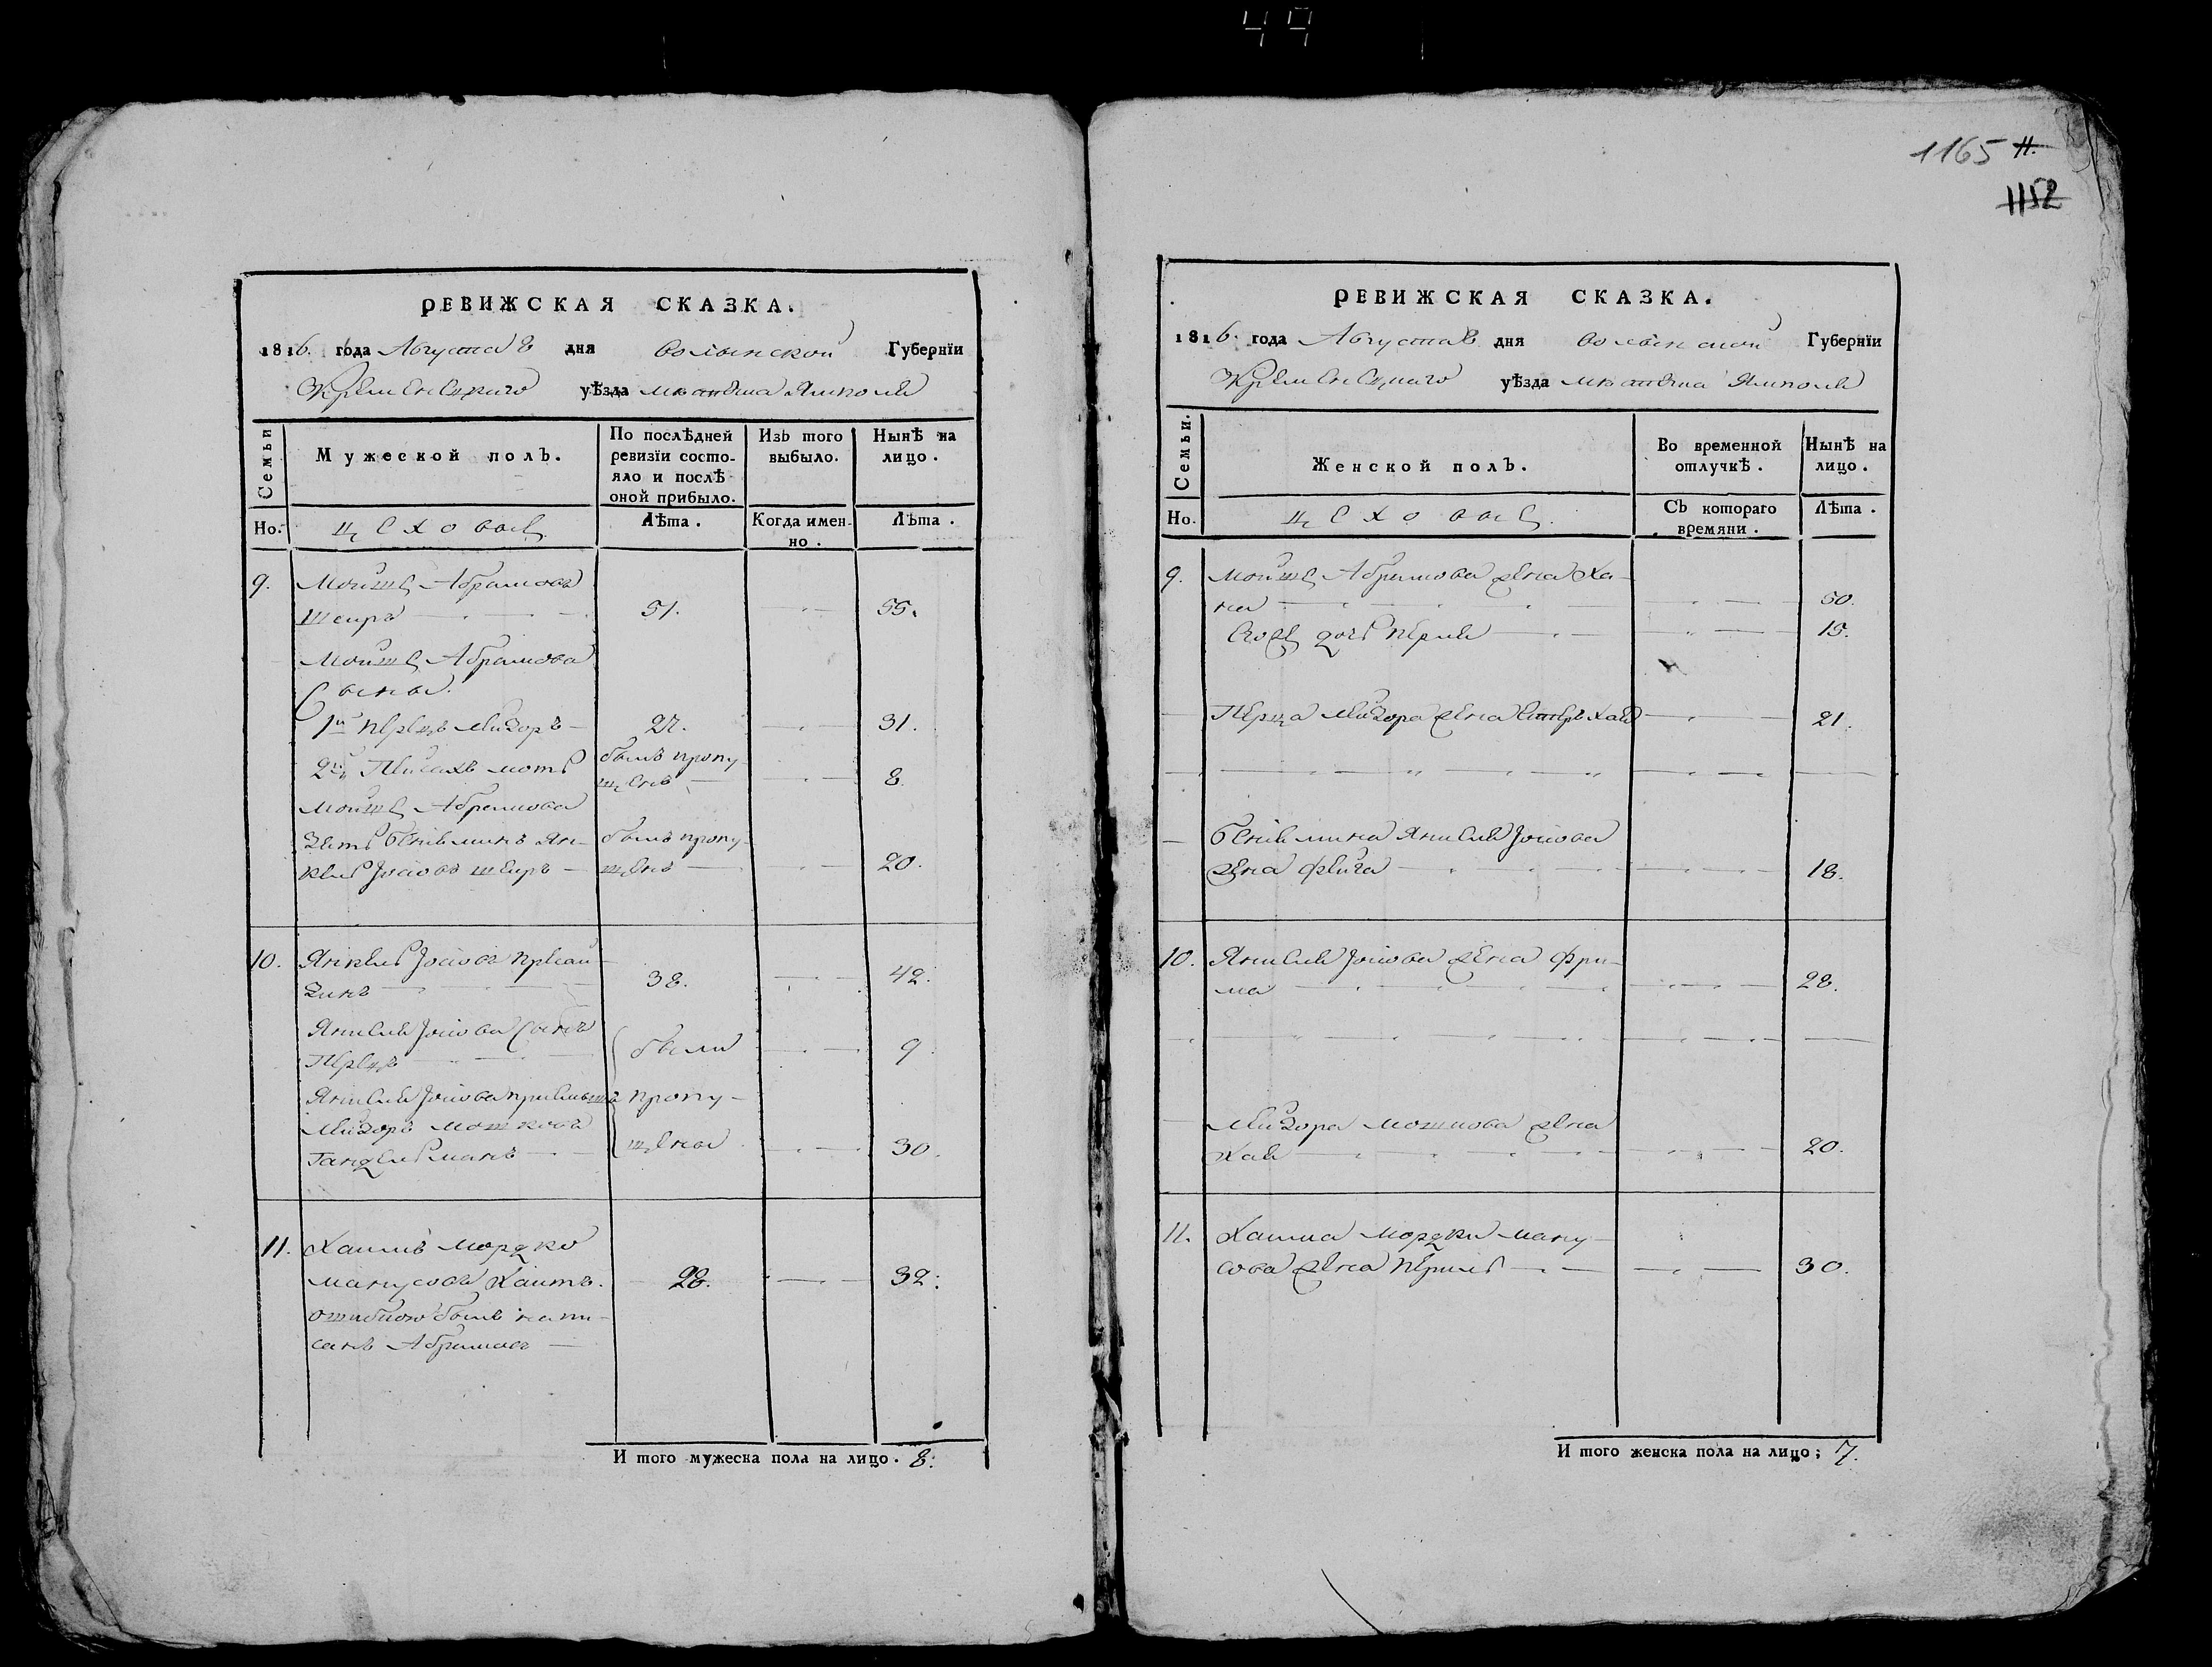 47
РЕВИЖСКАЯ СКАЗКА.
1816. года Августа 8 дня Волынской Губернїи
Кременецкаго уѣзда мѣстечка Ямполя
Семьи
Мужеской полъ.
По послѣдней ревизїи состо-
яло и послѣ
оной прибыло.
Изъ того
выбыло.
Нынѣ на
лицо.
Но.
цеховые
Лѣта.
Когда имен-
но.
Лѣта.
9. Мойше Абрамовъ
51. 55.
Мойше Абрамова
Сыны.
1й Перецъ Лейзоръ 27. 31.
2й Пейсахъ Моть былъ пропу-
щенъ 8
Мойше Абрамова
Зять Бениаминъ Ян- былъ пропу-
кель Іосіовъ щенъ 20.
10. Янкель Іосіовъ
38. 42.
Янкеля Іосіова Сынъ
Перецъ были 9.
Янкеля Іосіова пропу-
Лейзоръ Мошковъ
Гандельманъ щены 30.
11. Хаимъ Мордко
Манусовъ 28. 32.
ошибкою былъ напи-
санъ Абрамовъ
И того мужеска пола на лицо. 8.
1165 11.
1152
РЕВИЖСКАЯ СКАЗКА.
1816. года Августа 8 дня Волынской Губернїи
Кременецкаго уѣзда мѣстечка Ямполя
Семьи.
Женской полъ.
Во временной
отлучкѣ.
Нынѣ на
лицо.
Но.
цеховые.
Съ котораго
времяни.
Лѣта.
9. Мойше Абрамова жена Ха-
на 50.
его дочь Перля 15.
Перца Лейзора жена Эстеръ Хая 21.
Бениамина Янкеля Іосіова
жена Фейга 18.
10. Янкеля Іосіова жена Фри-
ма 28.
Лейзора Мошкова жена
Хая 20.
11. Хаима Мордки Ману-
сова жена Перль 30.
И того женска пола на лицо; 7.